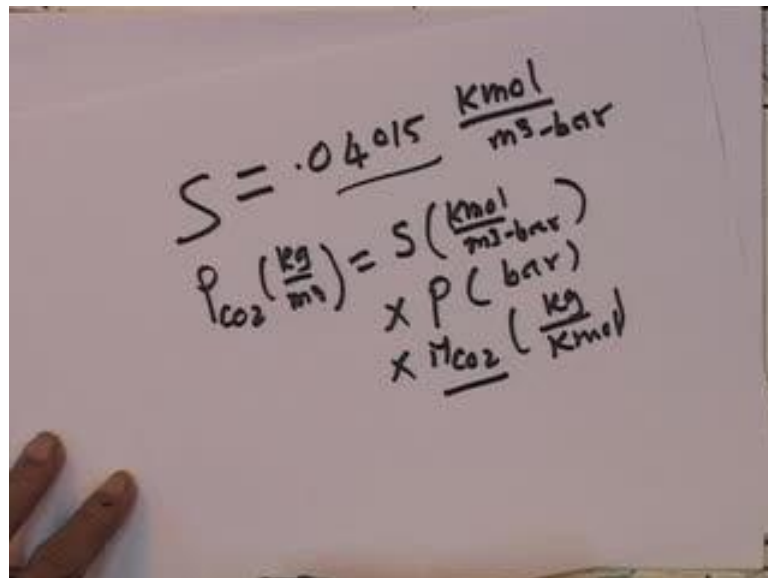 S = .04015 Kmol/m³-bar
ρCO2 (kg/m³) = S (Kmol/m³-bar)
x P (bar)
x MCO2 (kg/Kmol)